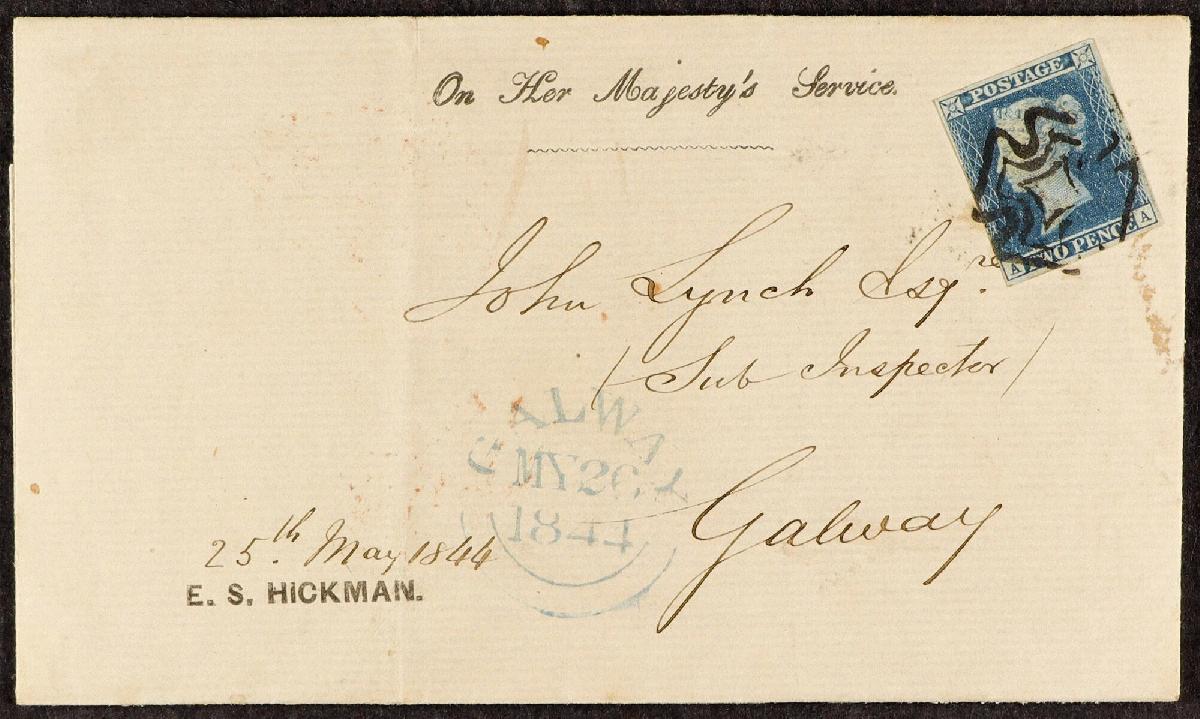 On Her Majesty's Service.
POSTAGE
A TWO PENCE A
John Lynch Esqre.
(Sub Inspector)
Galway
GALWAY
MY 26
1844
25th. May 1844
E. S. HICKMAN.